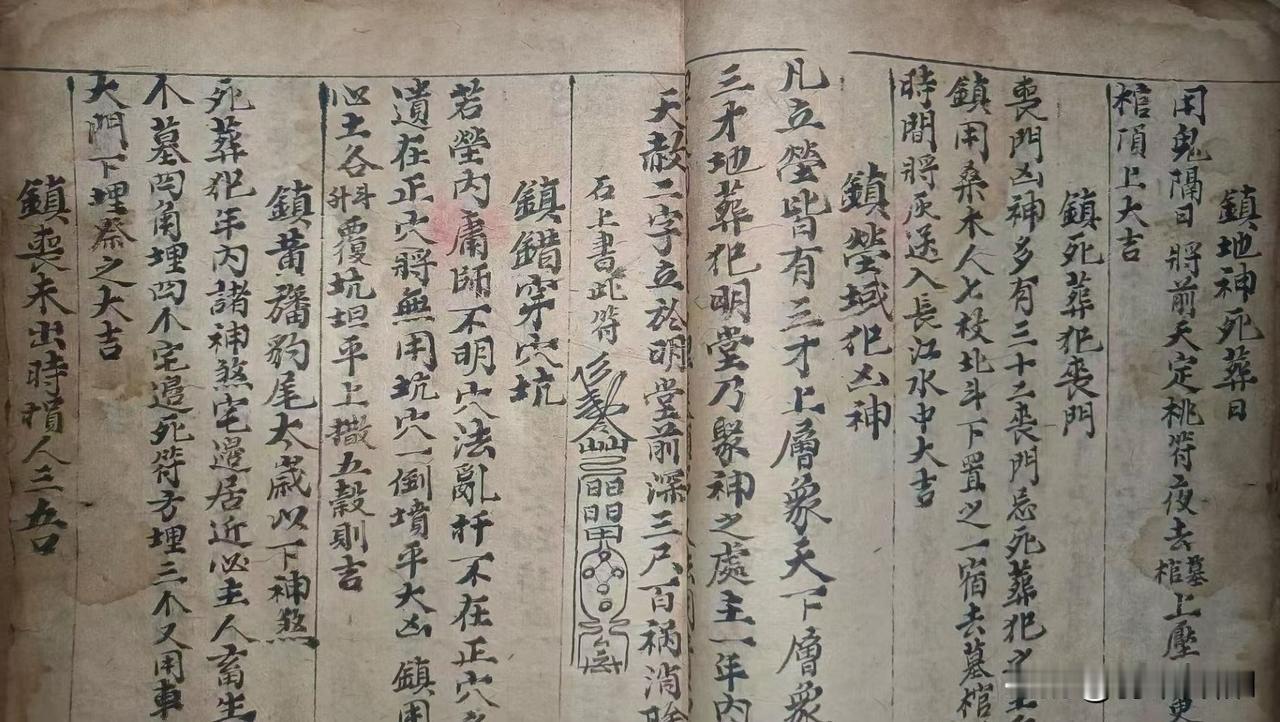 鎮地神死葬日
用鬼隔日將前天定桃符夜去墓棺上壓
棺頂上大吉
鎮死葬犯喪門
喪門凶神多有三十二喪門忌死葬犯之主
鎮用桑木人七枚北斗下置之一宿去墓棺
時間將灰送入長江水中大吉
鎮塋域犯凶神
凡立塋皆有三才上層象天下層象
三才地葬犯明堂乃聚神之處主一年內
天赦二字立於明堂前深三尺百禍消除
石上書此符
鎮錯穿穴坑
若塋內庸師不明穴法亂扦不在正穴
遺在正穴將無用坑穴一倒墳平大凶 鎮用
心土各斗升覆坑坦平上撒五穀則吉
鎮黃旛豹尾太歲以下神煞
死葬犯年內諸神煞宅邊居近必主人畜生
不墓四角埋四个宅邊死符方埋三个又用車
大門下埋祭之大吉
鎮喪未出時損人三五口